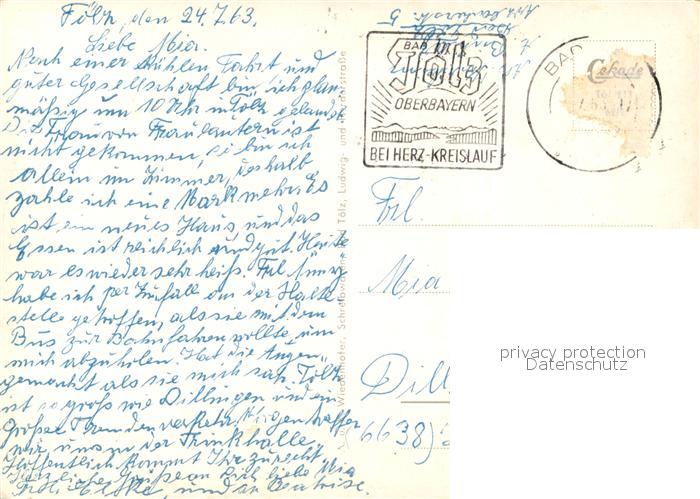 Tölz, den 24.7.63.
Liebe Mia.
Nach einer kühlen Fahrt und
guter Gesellschaft bin ich plan
mäßig um 10 Uhr in Tölz gelandet
Die Frau von Fraulautern ist
nicht gekommen, so bin ich
allein im Zimmer, deshalb
zahle ich eine Mark mehr. Es
ist ein neues Haus, und das
Essen ist reichlich und gut. Heute
war es wieder sehr heiß. Frl.
habe ich per Zufall an der Halte
stelle getroffen, als sie mit dem
Bus zur Bahn fahren wollte, um
mich abzuholen. Hat die Augen
gemacht als sie mich sah. Tölz
ist so groß wie Dillingen und ein
großer Fremdenverkehr. Morgen treffen
wir uns in der Trinkhalle.
Hoffentlich kommt Ihr zurecht
Herzliche Grüße an Dich liebe Mia
und an Beatrise.
BAD
Tölz
OBERBAYERN
BEI HERZ-KREISLAUF
BAD
Cekade
Frl.
Mia
Dill
(6638)
Tölz, Ludwig- und
privacy protection
Datenschutz